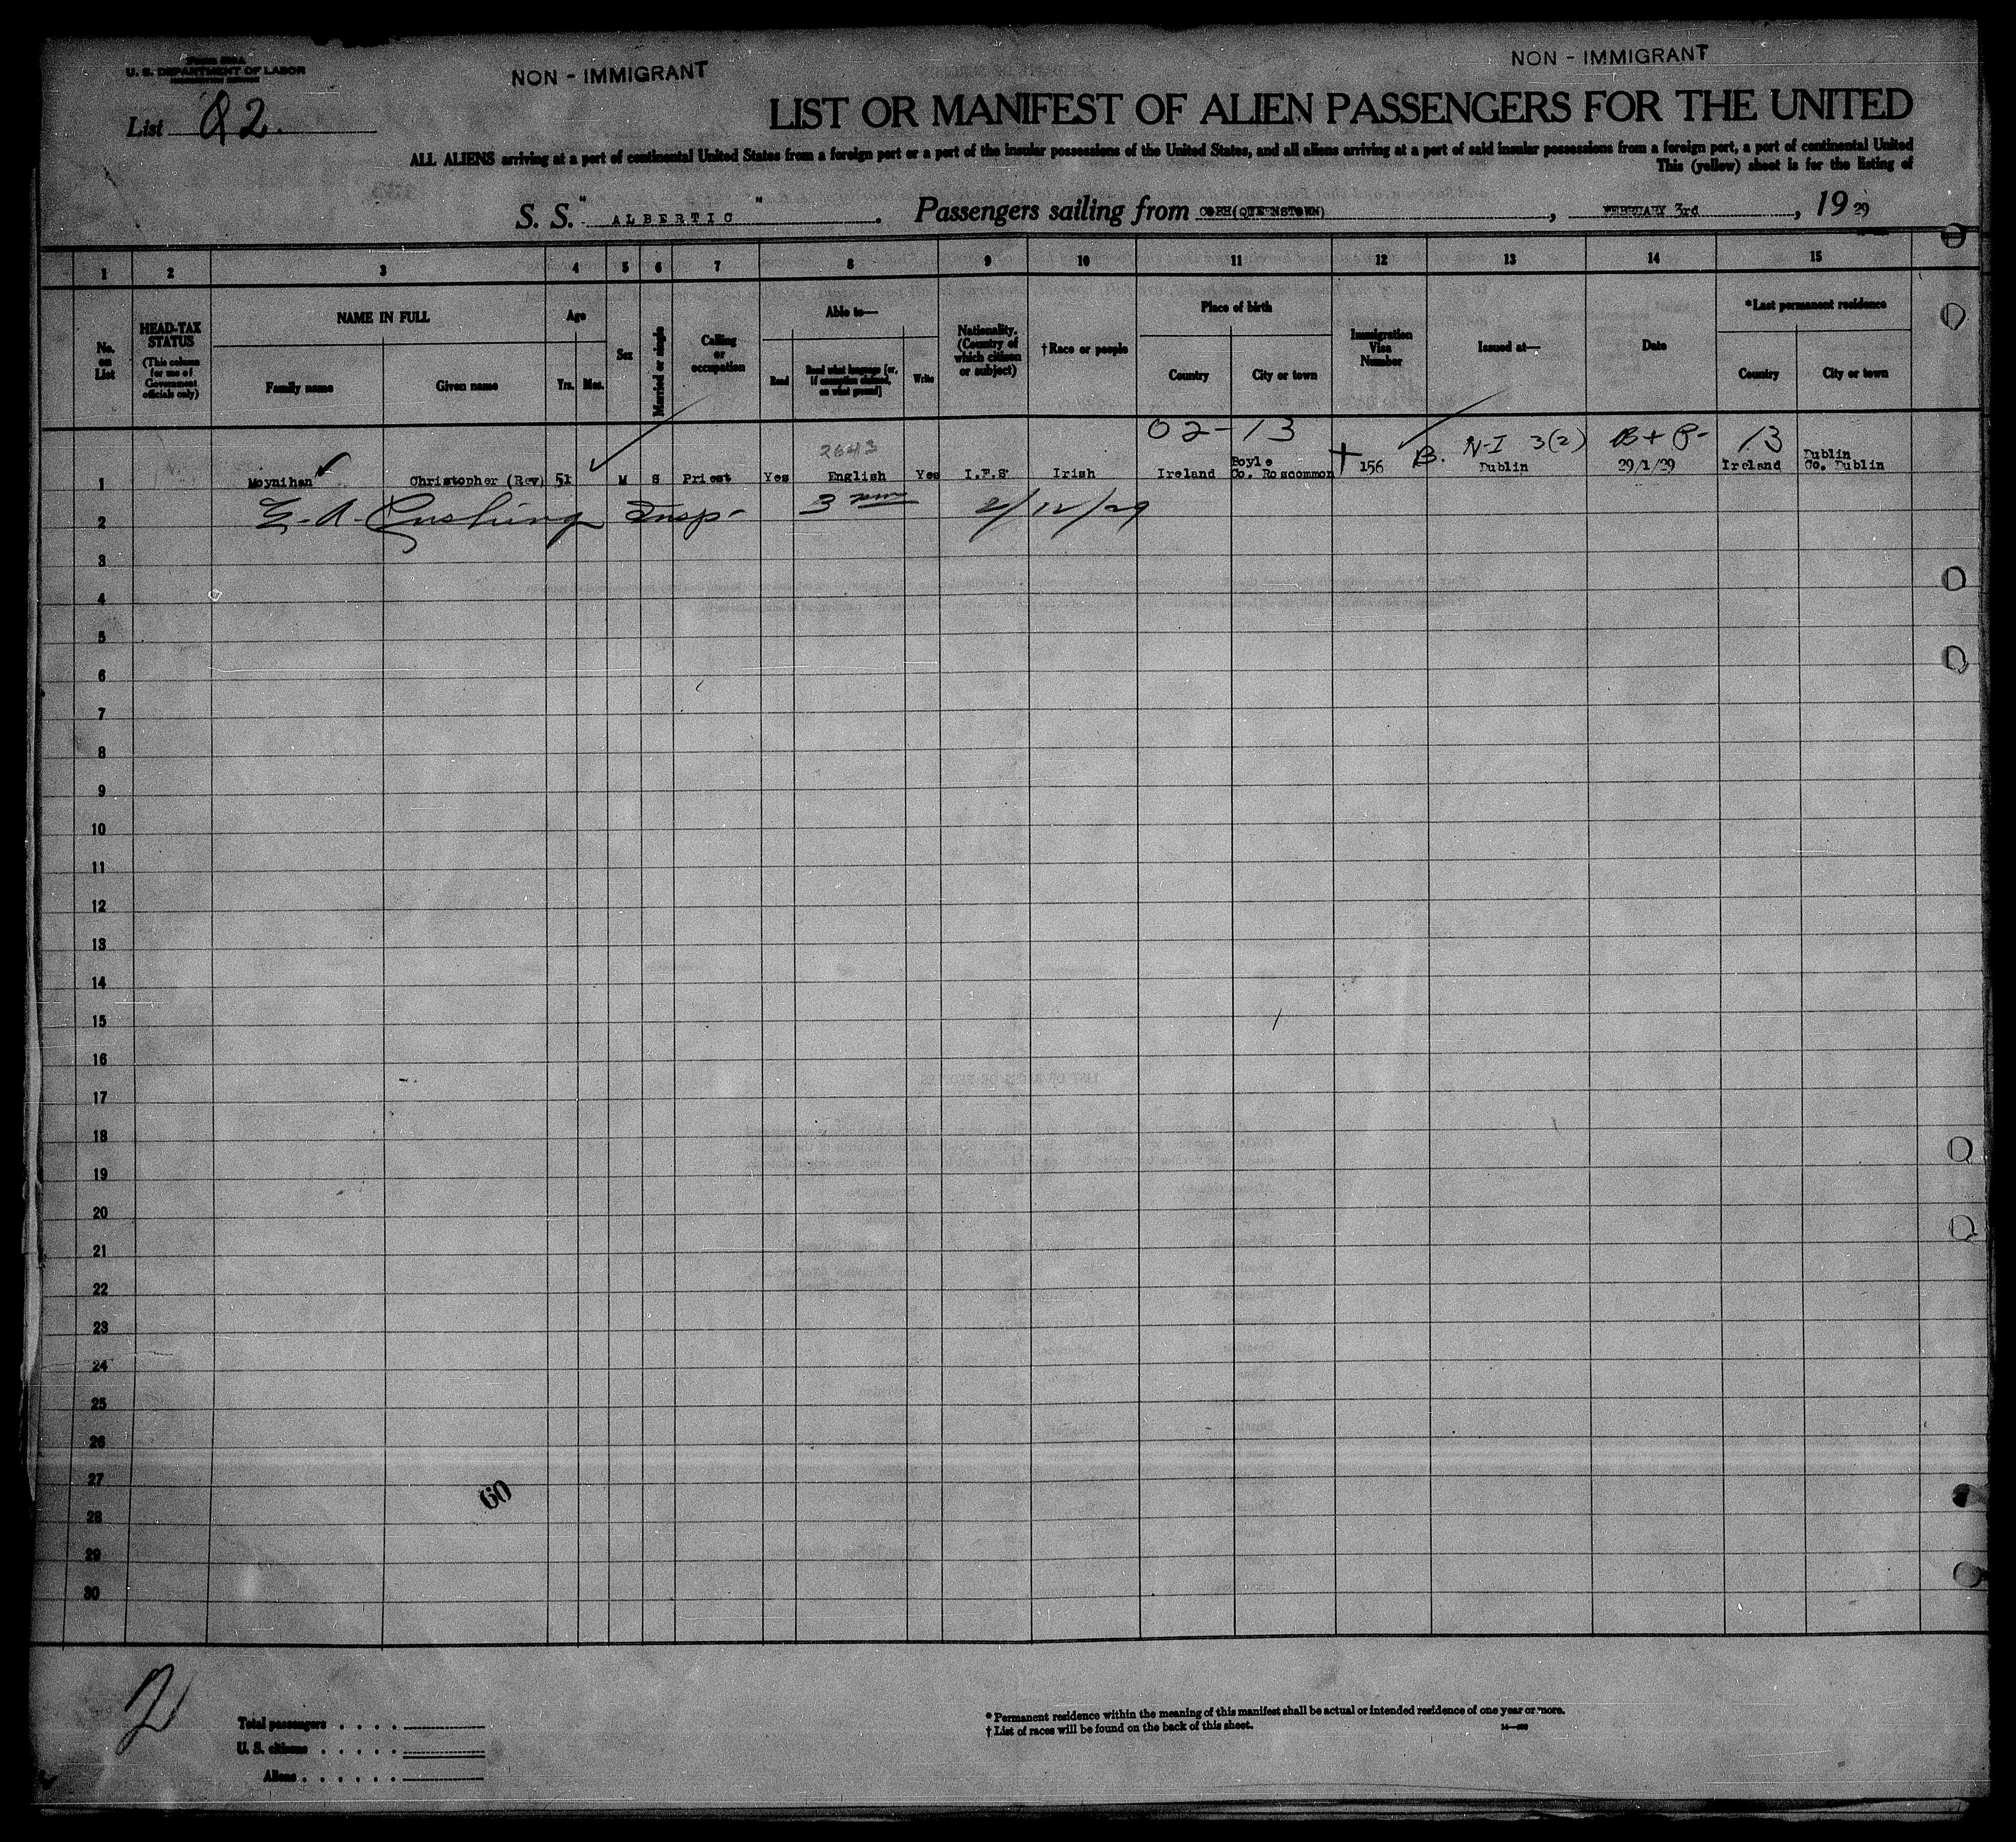 U. S. DEPARTMENT OF LABOR
NON - IMMIGRANT
NON - IMMIGRANT
List 92.
LIST OR MANIFEST OF ALIEN PASSENGERS FOR THE UNITED
ALL ALIENS arriving at a port of continental United States from a foreign port or a port of the insular possessions of the United States, and all aliens arriving at a port of said insular possessions from a foreign port, a port of continental United
This (yellow) sheet is for the listing of
S. S. " ALBERTIC " . Passengers sailing from COBH(QUEENSTOWN) , FEBRUARY 3rd , 19 29
1 2 3 4 5 6 7 8 9 10 11 12 13 14 15
No. on List
HEAD-TAX STATUS (This column for use of Government officials only)
NAME IN FULL
Family name
Given name
Age
Yrs.
Mos.
Sex
Married or single
Calling or occupation
Able to—
Read
Read what language [or, if exemption claimed, on what ground]
Write
Nationality. (Country of which citizen or subject)
†Race or people
Place of birth
Country
City or town
Immigration Visa Number
Issued at—
Date
*Last permanent residence
Country
City or town
2643
02-13
B.
N-I 3(2)
B + P-
13
1 Moynihan Christopher (Rev) 51 M S Priest Yes English Yes I.F.S Irish Ireland Boyle Co. Roscommon 156 Dublin 29/1/29 Ireland Dublin Co. Dublin
2 E. A. Cushing Insp- 3 pm 2/12/29
3
4
5
6
7
8
9
10
11
12
13
14
15
16
17
18
19
20
21
22
23
24
25
26
27
60
28
29
30
2
Total passengers . . . .
U. S. citizens . . . . .
Aliens . . . . . .
* Permanent residence within the meaning of this manifest shall be actual or intended residence of one year or more.
† List of races will be found on the back of this sheet.